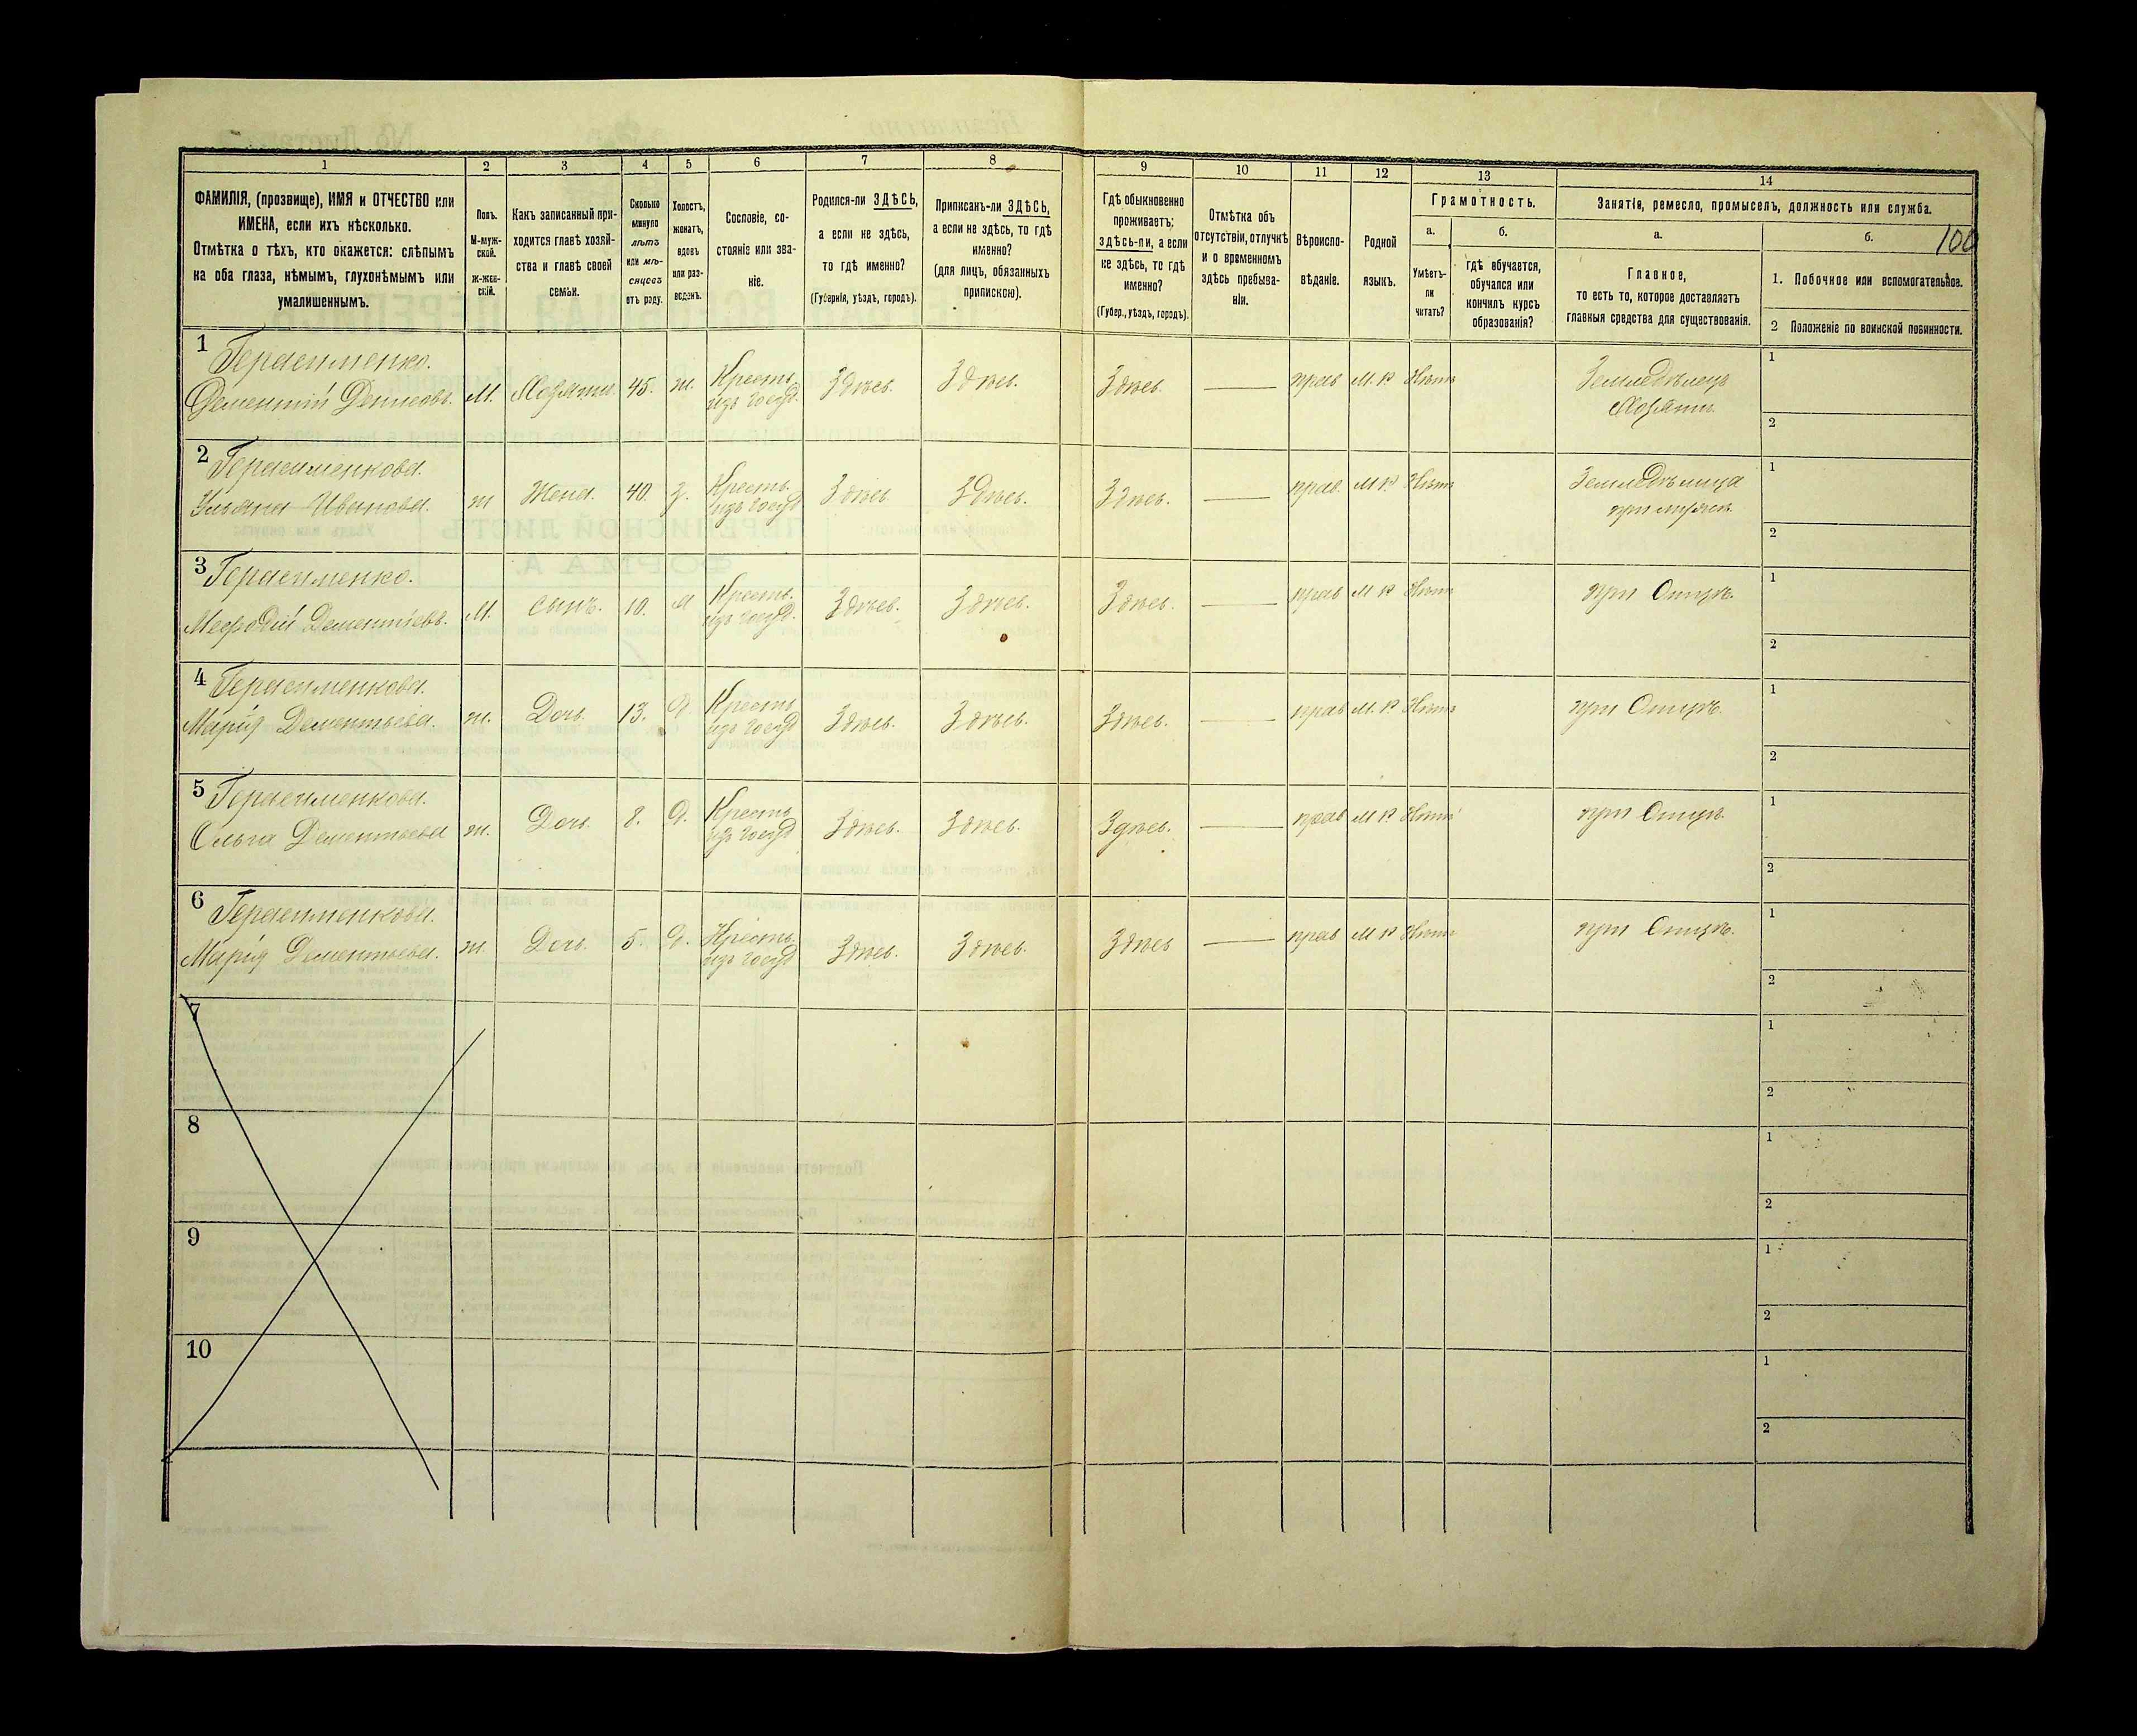 1 2 3 4 5 6 7 8 9 10 11 12 13 14
ФАМИЛІЯ, (прозвище), ИМЯ и ОТЧЕСТВО или
ИМЕНА, если ихъ нѣсколько.
Отмѣтка о тѣхъ, кто окажется: слѣпымъ
на оба глаза, нѣмымъ, глухонѣмымъ или
умалишеннымъ.
Полъ.
М-муж-
ской.
Ж-жен-
скій.
Какъ записанный при-
ходится главѣ хозяй-
ства и главѣ своей
семьи.
Сколько
минуло
лѣтъ
или мѣ-
сяцевъ
отъ роду.
Холостъ,
женатъ,
вдовъ
или раз-
веденъ.
Сословіе, со-
стояніе или зва-
ніе.
Родился-ли ЗДѢСЬ,
а если не здѣсь,
то гдѣ именно?
(Губернія, уѣздъ, городъ).
Приписанъ-ли ЗДѢСЬ,
а если не здѣсь, то гдѣ
именно?
(для лицъ, обязанныхъ
припискою).
Гдѣ обыкновенно
проживаетъ:
здѣсь-ли, а если
не здѣсь, то гдѣ
именно?
(Губер., уѣздъ, городъ).
Отмѣтка объ
отсутствіи, отлучкѣ
и о временномъ
здѣсь пребыва-
ніи.
Вѣроиспо-
вѣданіе.
Родной
языкъ.
Грамотность.
а.
Умѣетъ-
ли
читать?
б.
гдѣ обучается,
обучался или
кончилъ курсъ
образованія?
Занятіе, ремесло, промыселъ, должность или служба.
а.
Главное,
то есть то, которое доставляетъ
главныя средства для существованія.
б.
100
1. Побочное или вспомогательное.
2 Положеніе по воинской повинности.
1 Герасименко.
Дементій Денисовъ. М. Хозяинъ 45. ж. Кресть. изъ госуд. Здѣсь. Здѣсь. Здѣсь. — прав М. Р Нѣтъ Земледѣлецъ
Хозяинъ
1
2
2 Герасименкова.
Ульяна Иванова. ж Жена. 40. з. Кресть. изъ госуд Здѣсь Здѣсь. Здѣсь. — прав. М Р Нѣтъ Земледѣлица
при мужѣ
1
2
3 Герасименко.
Мефодій Дементіевъ. М. Сынъ. 10. х Кресть. изъ госуд. Здѣсь. Здѣсь. Здѣсь. — прав М Р Нѣтъ при Отцѣ.
1
2
4 Герасименкова.
Марія Дементьева. ж. Дочь. 13. д. Кресть изъ госуд Здѣсь. Здѣсь. Здѣсь. — прав М. Р Нѣтъ при Отцѣ.
1
2
5 Герасименкова.
Ольга Дементьева ж. Дочь. 8. д. Кресть изъ госуд Здѣсь. Здѣсь. Здѣсь. — прав М Р Нѣтъ при Отцѣ.
1
2
6 Герасименкова.
Марія Дементьева. ж. Дочь. 5. д. Кресть. изъ госуд Здѣсь. Здѣсь. Здѣсь — прав М Р Нѣтъ при Отцѣ.
1
2
7
1
2
8
1
2
9
1
2
10
1
2